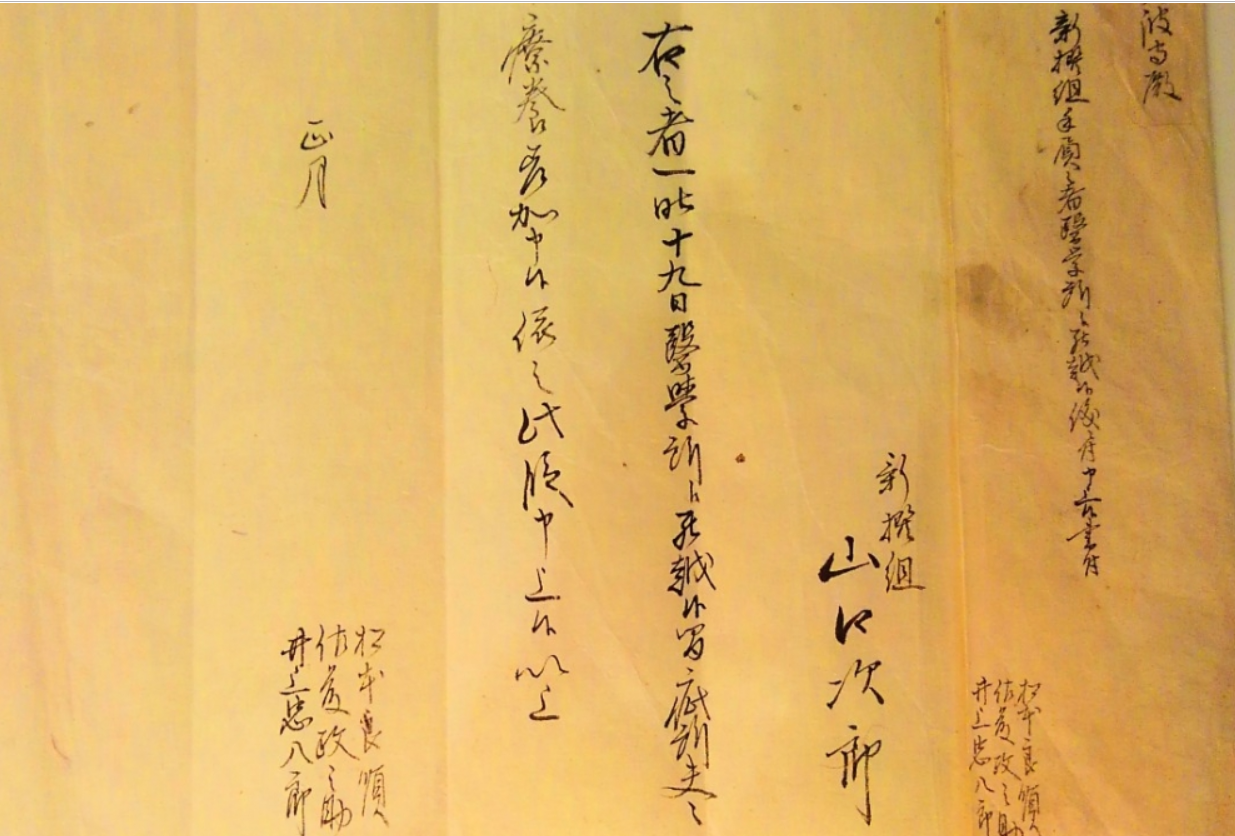 殿
新撰組手負之者醫学所江罷越候儀ニ付申上候書付
松本良順
佐藤政之助
井上忠八郎
新撰組
山口次郎
右之者一昨十九日醫學所江罷越候間疵所夫々
療養差加申候依之此段申上候以上
正月
松本良順
佐藤政之助
井上忠八郎